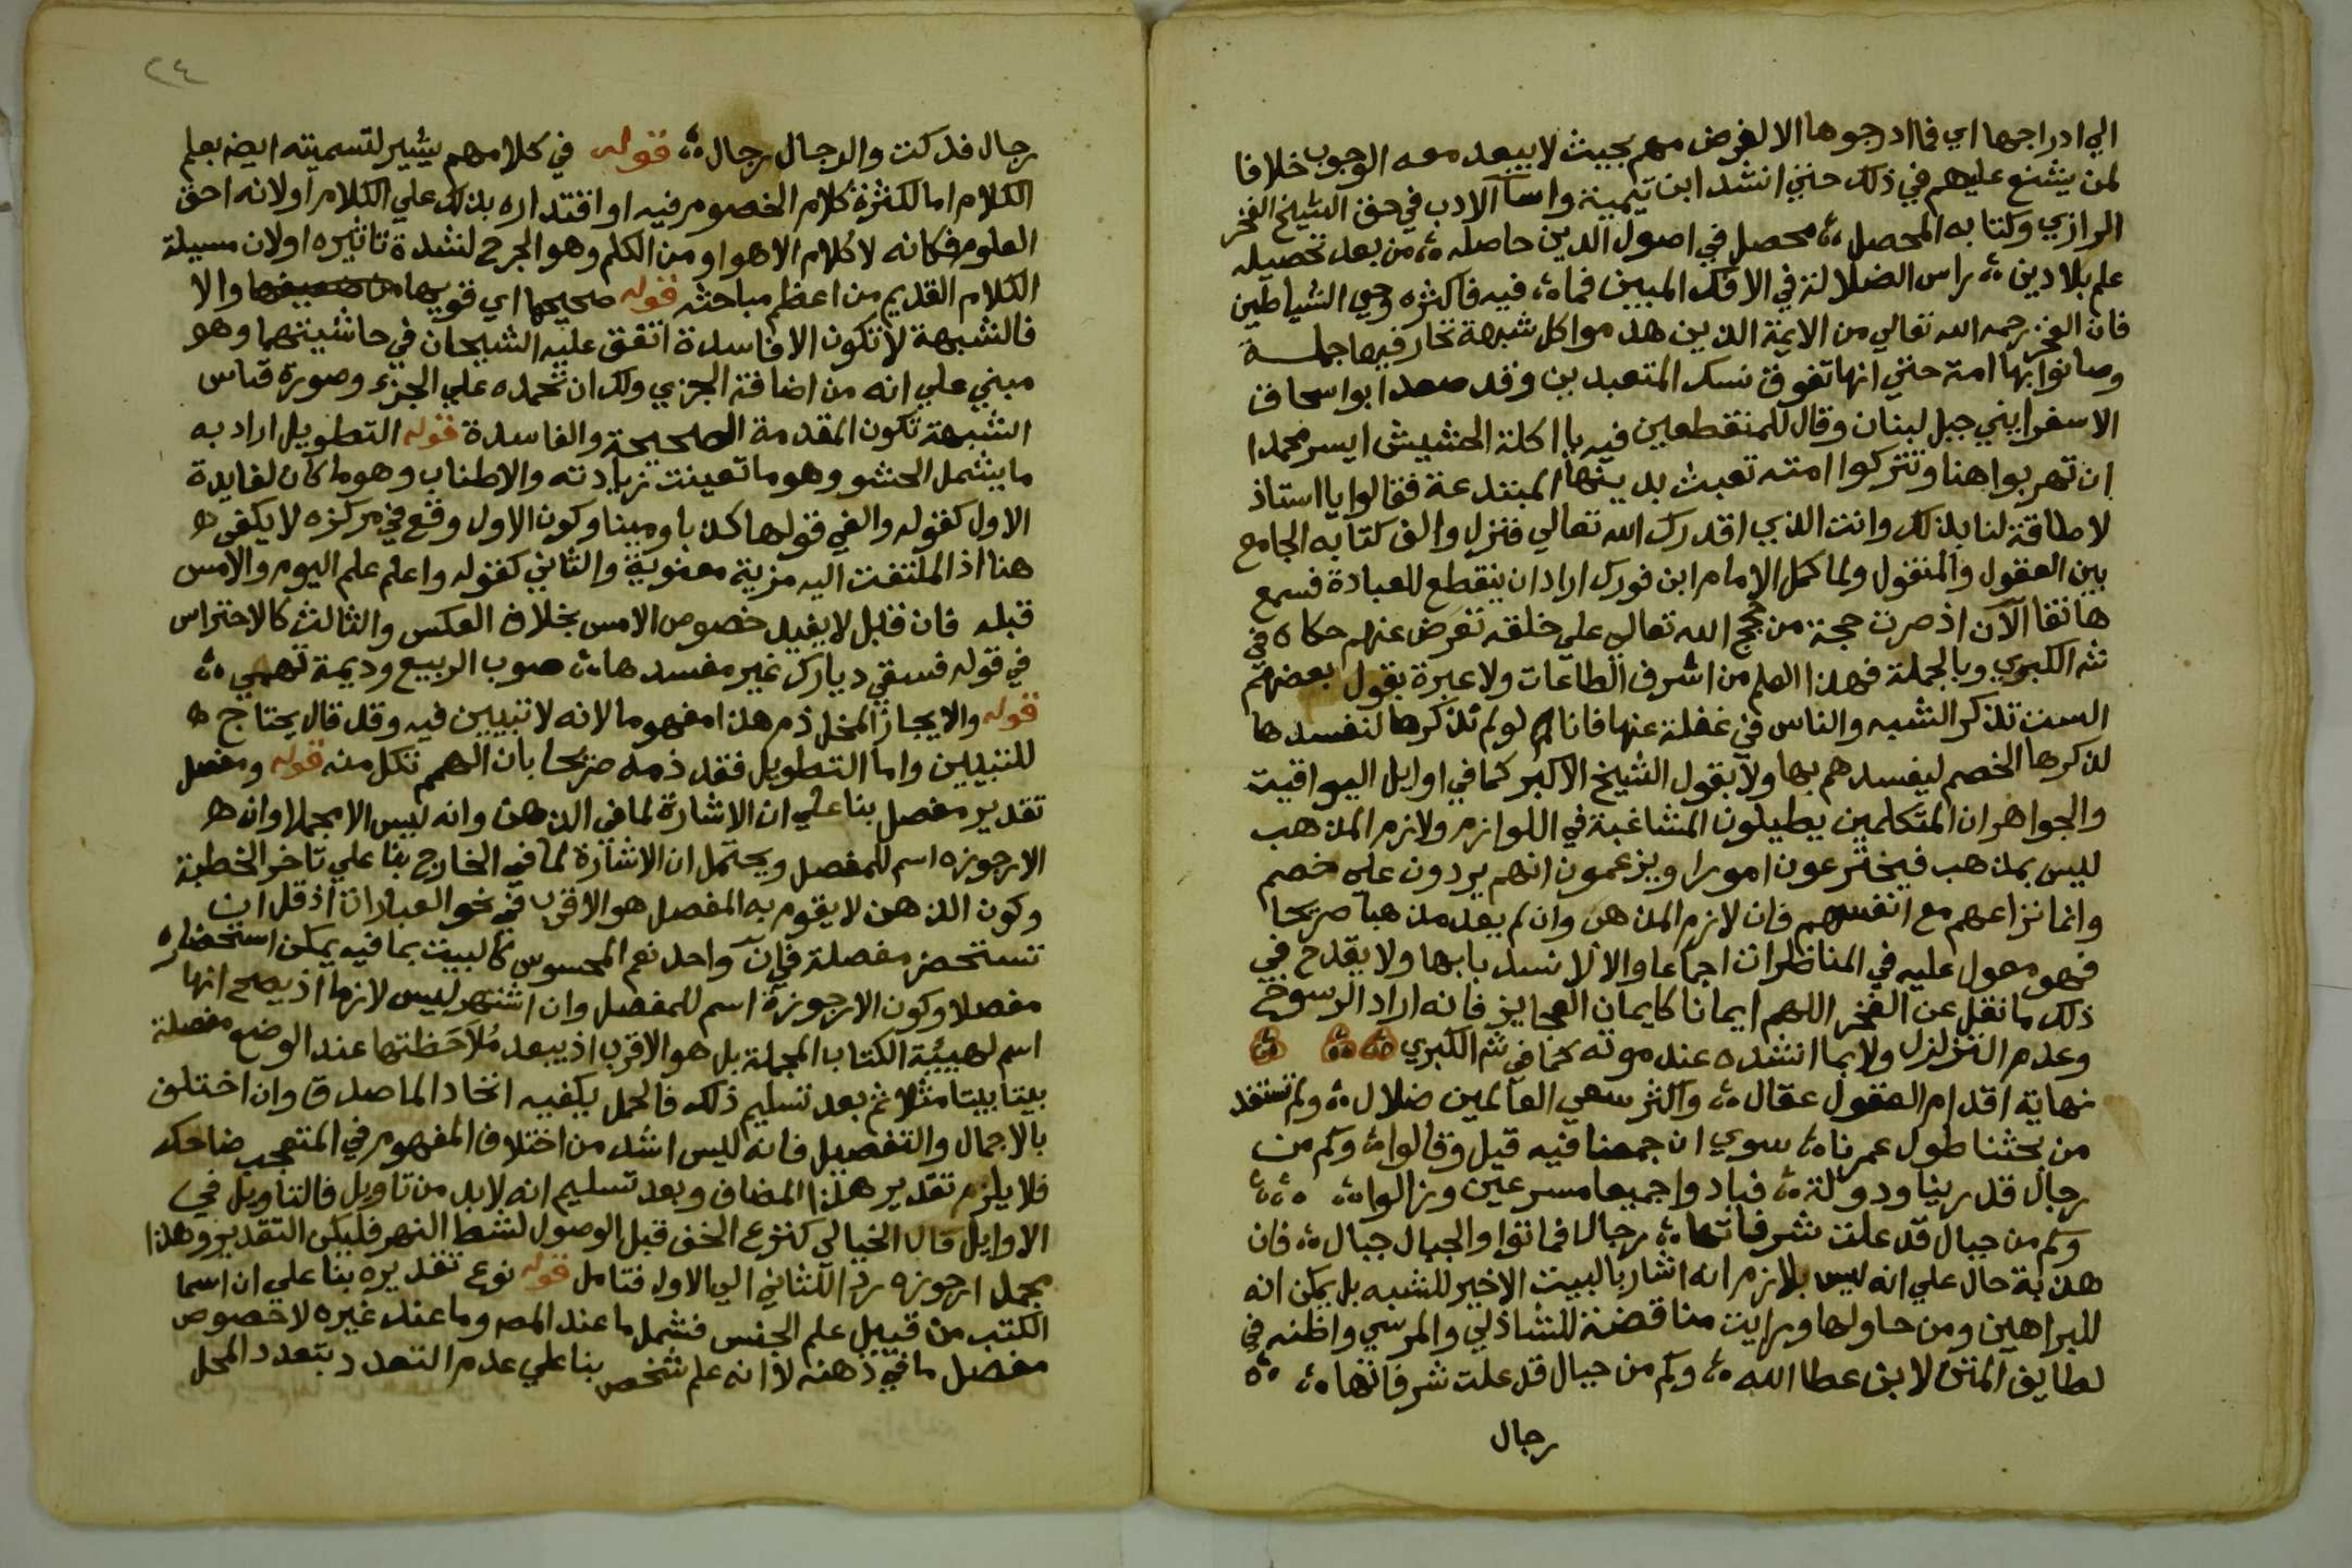 الي ادراجها اي فما ادرجوها الا لغرض مهم بحيث لا يبعد معه الوجوب خلافا
لمن يشنع عليهم في ذلك حتي انشد ابن تيمية واسآ الادب في حق الشيخ الفخر
الرازي وكتابه المحصل ؛ محصل في اصول الدين حاصله ؛ من بعد تحصيله
علم بلا دين ؛ راس الضلالة في الافك المبين فما ؛ فيه فاكثره وحي الشياطين
فان الفخر رحمه الله تعالي من الايمة الذين هدموا كل شبهة تحار فيها جملة
وصانوا بها امة حتي انها تفوق نسك المتعبدين وقد صعد ابو اسحاق
الاسفرايني جبل لبنان وقال للمنقطعين فيه يا اكلة الحشيش ايسر محمدا
ان تهربوا هنا وتتركوا امته تعبث بدينها المبتدعة فقالوا يا استاذ
لا طاقة لنا بذلك وانت الذي اقدرك الله تعالي فنزل والف كتابه الجامع
بين العقول والمنقول ولما كمل الامام ابن فورك اراد ان ينقطع للعبادة فسمع
هاتفا الآن اذ صرت حجة من حجج الله تعالي علي خلقه تعرض عنهم حكاه في
شه الكبري وبالجملة فهذا العلم من اشرف الطاعات ولا عبرة بقول بعضهم
الست تذكر الشبه والناس في غفلة عنها فانا لو لم نذكرها لنفسدها
لذكرها الخصم ليفسدهم بها ولا بقول الشيخ الاكبر كما في اوايل اليواقيت
والجواهر ان المتكلمين يطيلون المشاغبة في اللوازم ولازم المذهب
ليس بمذهب فيخترعون امورا ويزعمون انهم يردون علي خصم
وانما نزاعهم مع انفسهم فان لازم المذهب وان لم يعد مذهبا صريحا
فهو معول عليه في المناظرات اجماعا والا لا نسد بابها ولا يقدح في
ذلك ما نقل عن الفخر اللهم ايمانا كايمان العجايز فانه اراد الرسوخ
وعدم التزلزل ولا بما انشده عند موته كما في شه الكبري
نهاية اقدام العقول عقال ؛ واكثر سعي العالمين ضلال ؛ ولم نستفد
من بحثنا طول عمرنا ؛ سوي ان جمعنا فيه قيل وقالوا ؛ وكم من
رجال قد رينا ودولة ؛ فبادوا جميعا مسرعين وزالوا ؛
وكم من جبال قد علت شرفاتها ؛ رجال فماتوا والجبال جبال ؛ فان
هذ بة حال علي انه ليس بلازم انه اشار بالبيت الاخير للشبه بل يمكن انه
للبراهين ومن حاولها ورايت مناقضة للشاذلي والمرسي واظنه في
لطايف المتن لابن عطا الله ؛ وكم من جبال قد علت شرفاتها ؛
رجال
٢٤
رجال فدكت والرجال رجال ؛ قوله في كلامهم يشير لتسميته ايضه بعلم
الكلام اما لكثرة كلام الخصوم فيه او اقتداره بذلك علي الكلام اولانه احق
العلوم فكانه لا كلام الا هو او من الكلم وهو الجرح لشدة تاثيره اولان مسيلة
الكلام القديم من اعظم مباحثه قوله صحيحها اي قويها والا
فالشبهة لا تكون الا فاسدة اتفق عليه الشيحان في حاشيتهما وهو
مبني علي انه من اضافة الجزي ولك ان تحمده علي الجزء وصورة قياس
الشبهة تكون المقدمة الصحيحة والفاسدة قوله التطويل اراد به
ما يشمل الحشو وهو ما تعينت زيادته والاطناب وهو ما كان لفايدة
الاول كقوله والفي قولها كذبا ومينا وكون الاول وقع في مركزه لا يكفي ه
هنا اذ الملتفت اليه مزية معنوية والثاني كقوله واعلم علم اليوم والامس
قبله فان قبل لا يفيد خصوص الامس بخلاف العكس والثالث كالاحتراس
في قوله فسقي ديارك غير مفسدها ؛ صوب الربيع وديمة تهمي ؛
قوله والايجاز المخل ذم هذا مفهوما لانه لا تبيين فيه وقد قال يحتاج ه
للتبيين واما التطويل فقد ذمه صريحا بان الهمم تكل منه قوله ومفصل
تقدير مفصل بنا علي ان الاشارة لما في الذهن وانه ليس الا مجملا وان ه
الارجوزه اسم للمفصل ويحتمل ان الاشارة لما في الخارج بنا علي تاخر الخطبة
وكون الذهن لا يقوم به المفصل هو الاقرب في نحو العبارات اذ قل ان
تستحضر مفصلة في آن واحد نعم المحسوس كالبيت بما فيه يمكن استحضاره
مفصلا وكون الارجوزة اسم للمفصل وان اشتهر ليس لازما اذ يصح انها
اسم لهيئة الكتاب المجملة بل هو الاقرب اذ يبعد ملاحظتها عند الوضع مفصلة
بيتا بيتا مثلا ثم بعد تسليم ذلك فالحمل يكفيه اتحاد الماصدق وان اختلف
بالاجمال والتفصيل فانه ليس اشد من اختلاف المفهوم في المتعجب ضاحك
فلا يلزم تقدير هذا المضاف وبعد تسليم انه لا بد من تاويل فالتاويل في
الاوايل قال الخيالي كنزع الخف قبل الوصول لشط النهر فليكن التقدير وهذا
مجمل ارجوزه رد للثاني الي الاول فتامل قوله نوع تقديره بنا علي ان اسما
الكتب من قبيل علم الجنس فشمل ما عند المصه وما عند غيره لا خصوص
مفصل ما في ذهنه لا انه علم شخص بنا علي عدم التعدد بتعدد المحل